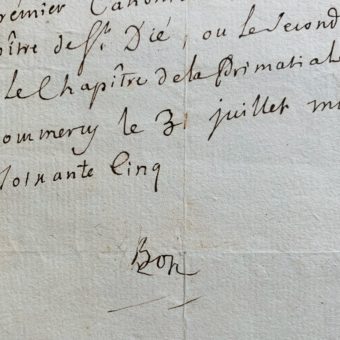 premier Canoni
pître de St. Dié, ou le second
le Chapître de la Primatiale
ommercy le 31 juillet mi
soixante Cinq
Bon